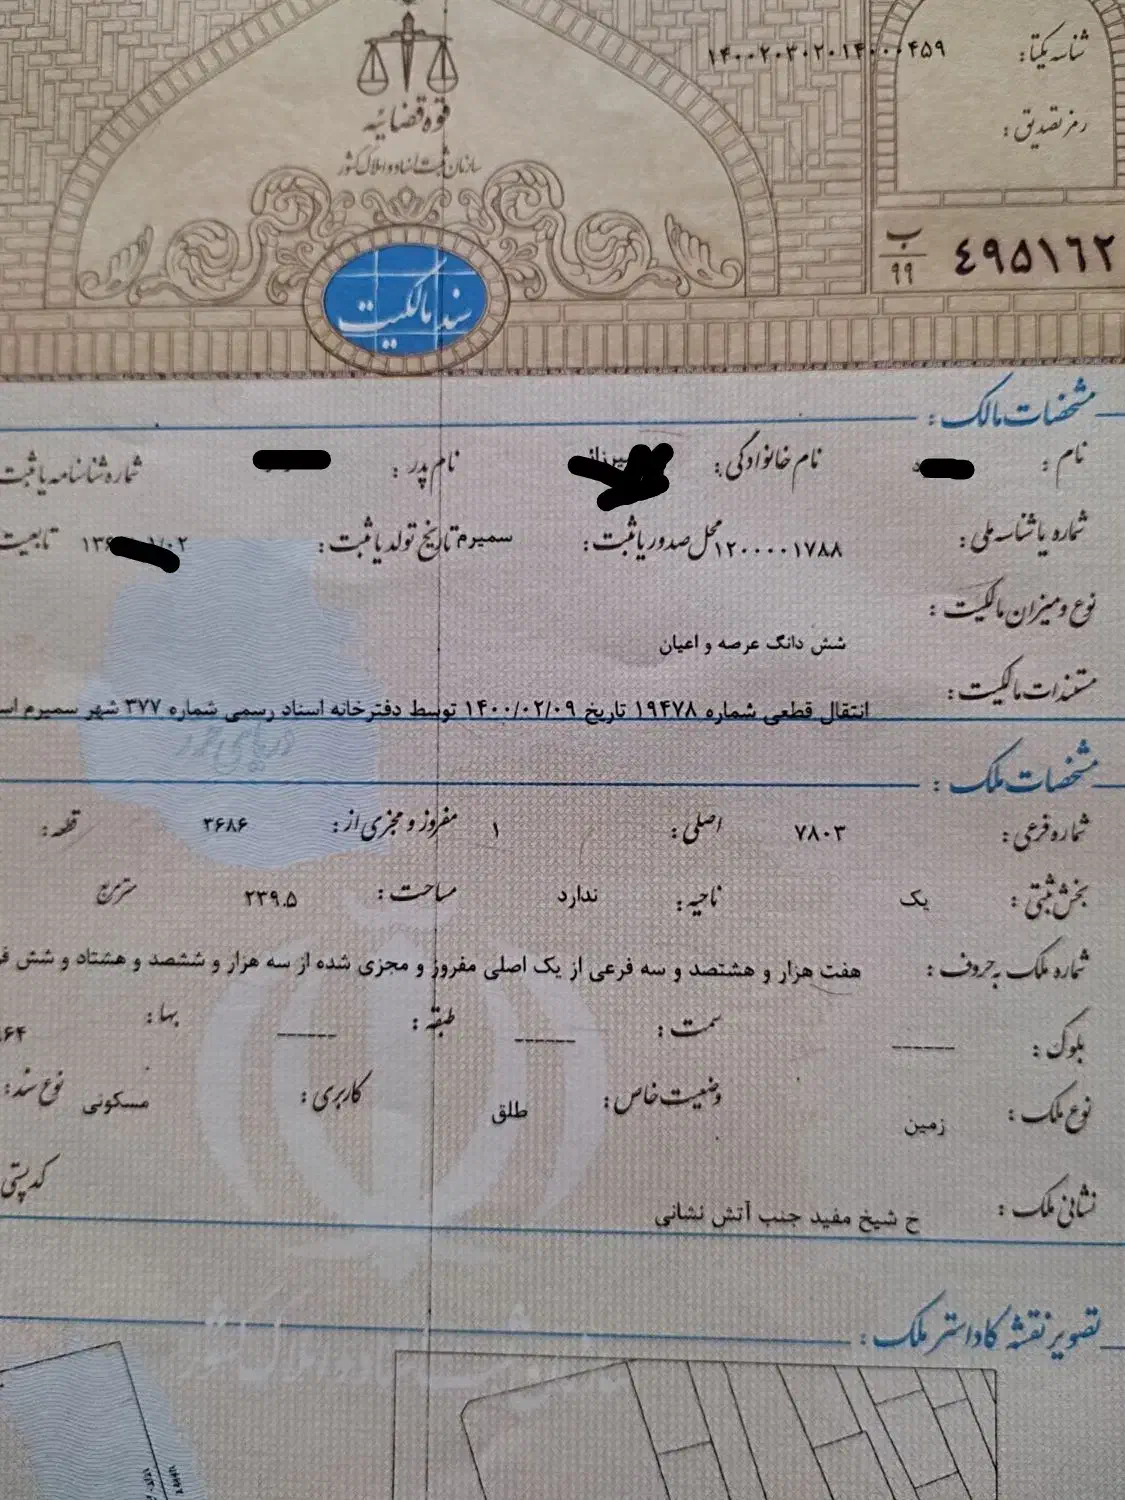 شناسه یکتا: ۱۴۰۰۲۰۳۰۲۰۱۴۰۰۰۴۵۹
قوه قضائیه
رمز تصدیق:
سازمان ثبت اسناد و املاک کشور
ب
۹۹
۴۹۵۱۶۲
سند مالکیت
مشخصات مالک:
نام: نام خانوادگی: نام پدر: شماره شناسنامه یا ثبت
شماره یا شناسه ملی: ۱۲۰۰۰۰۱۷۸۸ محل صدور یا ثبت: سمیرم تاریخ تولد یا ثبت: تابعیت
نوع و میزان مالکیت:
شش دانگ عرصه و اعیان
مستندات مالکیت:
انتقال قطعی شماره ۱۹۴۷۸ تاریخ ۱۴۰۰/۰۲/۰۹ توسط دفترخانه اسناد رسمی شماره ۳۷۷ شهر سمیرم
دریای خزر
مشخصات ملک:
شماره فرعی: ۷۸۰۳ اصلی: ۱ مفروز و مجزی از: ۳۶۸۶ قطعه:
بخش ثبتی: یک ناحیه: ندارد مساحت: ۲۳۹.۵ مترمربع
شماره ملک به حروف: هفت هزار و هشتصد و سه فرعی از یک اصلی مفروز و مجزی شده از سه هزار و ششصد و هشتاد و شش
بلوک: ------ سمت: ------ طبقه: ------ بها:
نوع ملک: زمین وضعیت خاص: طلق کاربری: مسکونی نوع سند:
کد پستی
نشانی ملک: خ شیخ مفید جنب آتش نشانی
تصویر نقشه کاداستر ملک: